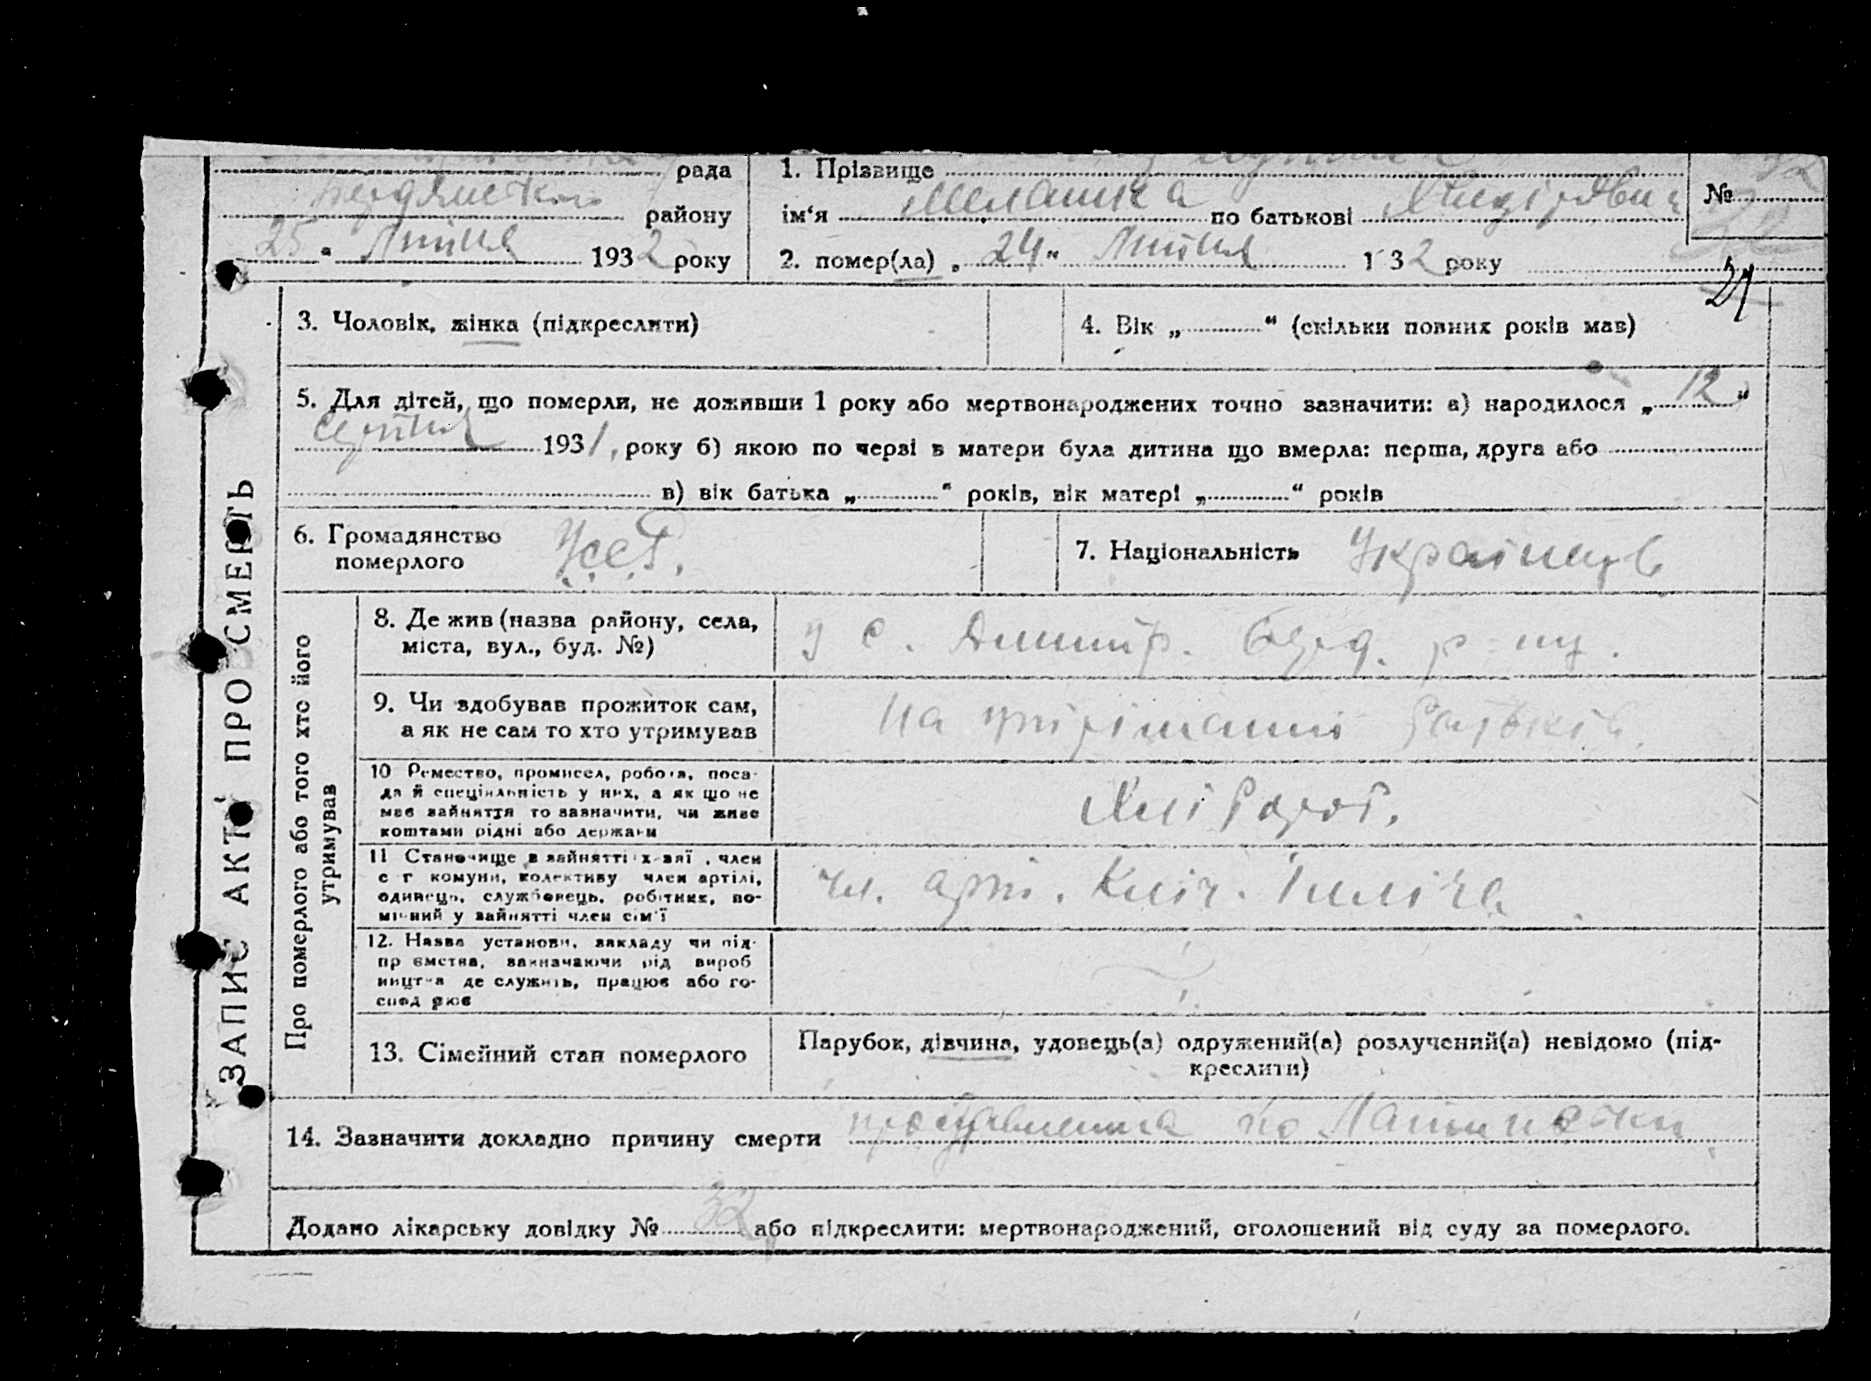 рада
1. Прізвище
№
Бердянського району
ім'я Меланка по батькові
25 " Липня 1932 року
2. помер(ла) „ 24 " Липня 1 32 року
21
3. Чоловік, жінка (підкреслити)
4. Вік „ " (скільки повних років мав)
5. Для дітей, що померли, не доживши 1 року або мертвонароджених точно зазначити: а) народилося „ 12 "
серпня 1931, року б) якою по черзі в матери була дитина що вмерла: перша, друга або
в) вік батька „ " років, вік матері „ " років
6. Громадянство
померлого
УССР.
7. Національність
Українц.
ЗАПИС АКТУ ПРО СМЕРТЬ
Про померлого або того хто його
утримував
8. Де жив (назва району, села,
міста, вул., буд. №)
у с. Дмитр. Берд. р-ну.
9. Чи здобував прожиток сам,
а як не сам то хто утримував
На утриманні батьків.
10 Ремество, промисел, робота, поса-
да й спеціяльність у них, а як що не
має зайняття то зазначити, чи живе
коштами рідні або держави
Хлібороб.
11 Становище в зайнятті: х-зяї , член
с г комуни, колективу член артілі,
одинець, службовець, робітник, по-
мічний у зайнятті член сім'ї
чл. арт. Ілліча.
12. Назва установи, закладу чи під-
пр ємства, зазначаючи рід вироб
ництва де служить, працює або го-
спод рює
13. Сімейний стан померлого
Парубок, дівчина, удовець(а) одружений(а) розлучений(а) невідомо (під-
креслити)
14. Зазначити докладно причину смерти
Додано лікарську довідку № 32 або підкреслити: мертвонароджений, оголошений від суду за померлого.